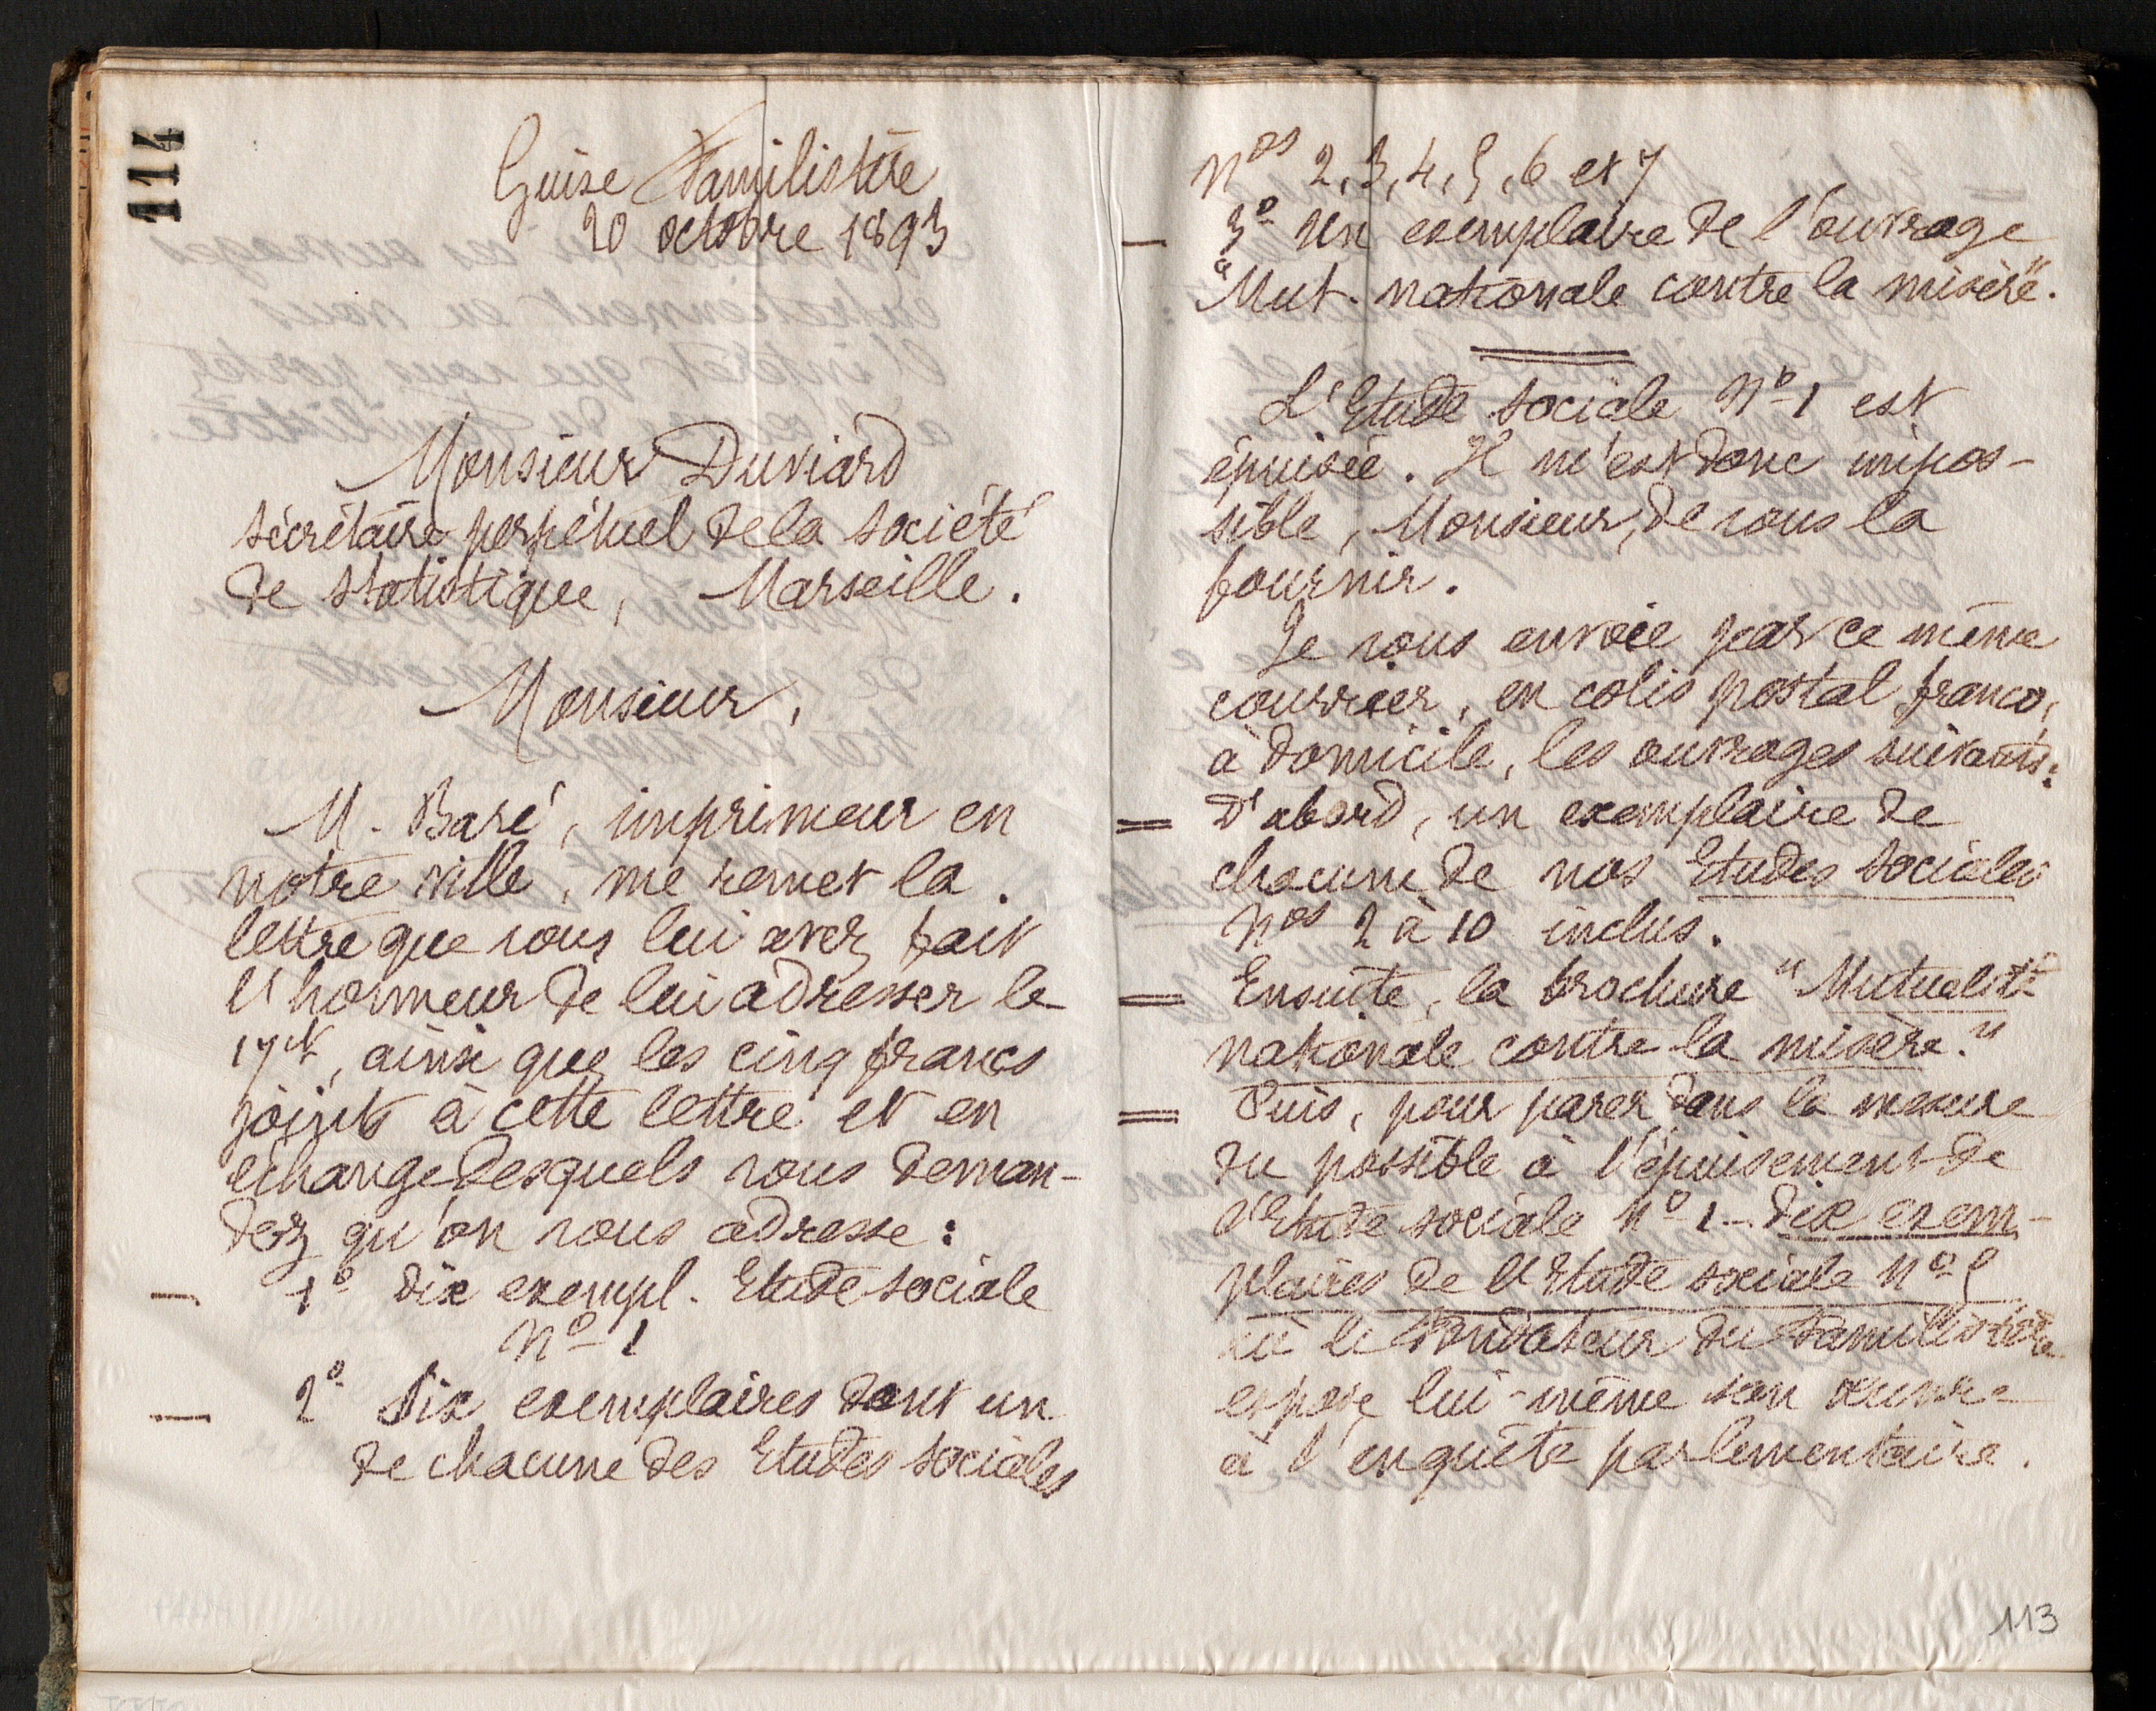 114
Guise Familistère
20 octobre 1893
Monsieur Duviard
secrétaire perpétuel de la société
de statistique, Marseille.
Monsieur,
M. Baré, imprimeur en
notre ville, me remet la
lettre que vous lui avez fait
l'honneur de lui adresser le
17 ct, ainsi que les cinq francs
joints à cette lettre et en
échange desquels vous deman-
dez qu'on vous adresse :
— 1º dix exempl. Etude sociale
Nº 1
— 2º Six exemplaires dont un
de chacune des Etudes sociales
Nos 2, 3, 4, 5, 6 et 7
— 3º Un exemplaire de l'ouvrage
"Mut. nationale contre la misère".
L'Etude sociale Nº 1 est
épuisée. Il m'est donc impos-
sible, Monsieur, de vous la
fournir.
Je vous envoie par ce même
courrier, en colis postal franco,
à domicile, les ouvrages suivants :
= D'abord, un exemplaire de
chacune de nos Etudes sociales
Nos 2 à 10 inclus.
= Ensuite, la brochure "Mutualité
nationale contre la misère."
= Puis, pour parer dans la mesure
du possible à l'épuisement de
l'Etude sociale Nº 1 - dix exem-
plaires de l'Etude sociale Nº 5
où le Fondateur du Familistère
expose lui-même son œuvre
à l'enquête parlementaire.
113